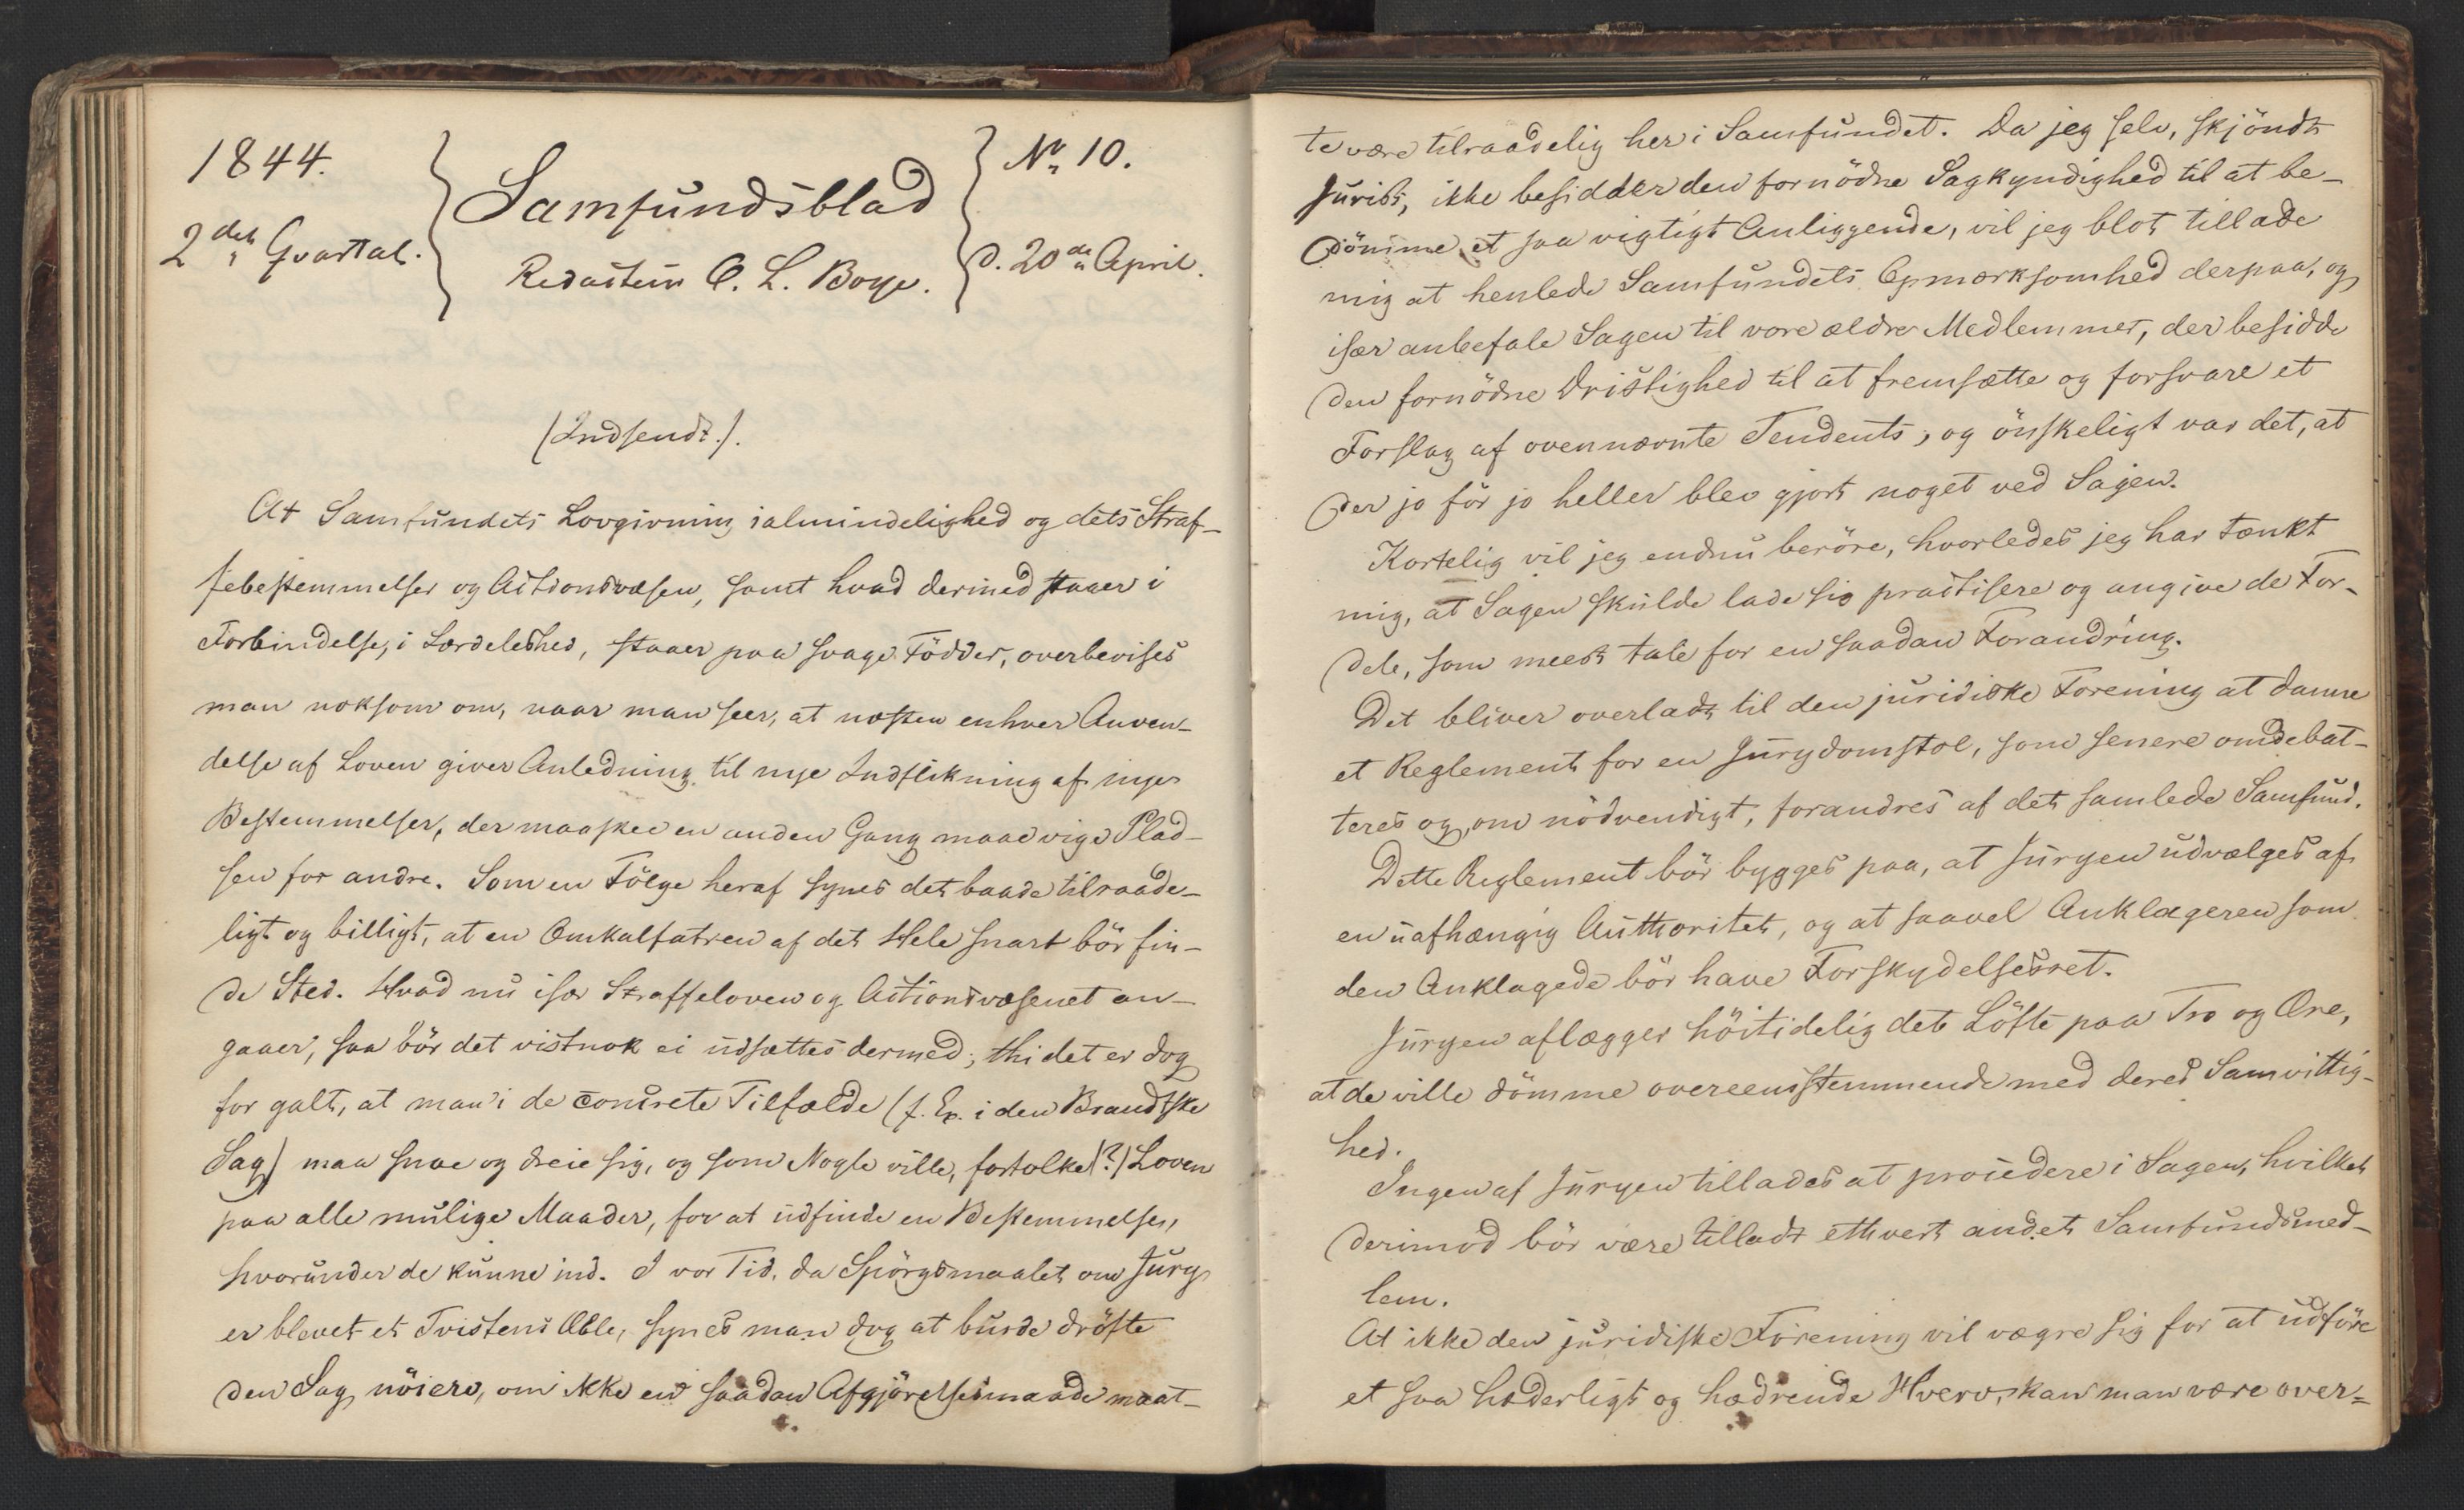 1844.
2det Qvartal.
Samfundsblad
Redacteur C. L. Boye.
No 10.
d. 20de April.
(Indsendt.).
At Samfundets Lovgivning i almindelighed og dets Straf-
febestemmelser og Actionsvæsen, samt hvad dermed staaer i
Forbindelse, i Særdeleshed, staaer paa svage Födder, overbevises
man noksom om, naar man seer, at næsten enhver Anven-
delse af Loven giver Anledning til nye Indflikning af nye
Bestemmelser, der maaskee en anden Gang maae vige Plad-
sen for andre. Som en Fölge heraf synes det baade tilraade-
ligt og billigt, at en Omkalfatren af det Hele snart bör fin-
de Sted. Hvad nu især Straffeloven og Actionsvæsenet an-
gaaer, saa bör det vistnok ei udsættes dermed; thi det er dog
for galt, at man i de concrete Tilfælde (f. Ex. i den Brandtske
Sag) maa snoe og dreie sig, og som Nogle ville, fortolke(?) Loven
paa alle mulige Maader, for at udfinde en Bestemmelse,
hvorunder de kunne ind. I vor Tid, da Spörgsmaalet om Jury
er blevet et Tvistens Æble, synes man dog at burde dröfte
den Sag nöiere, om ikke en saadan Afgjörelsesmaade maat-
te være tilraadelig her i Samfundet. Da jeg selv, skjöndt
Jurist, ikke besidder den fornödne Sagkyndighed til at be-
dömme et saa vigtigt Anliggende, vil jeg blot tillade
mig at henlede Samfundets Opmærksomhed derpaa, og
især anbefale Sagen til vore ældre Medlemmer, der besidde
den fornödne Dristighed til at fremsætte og forsvare et
Forslag af ovennævnte Tendents, og önskeligt var det, at
der jo för jo heller blev gjort noget ved Sagen.
Kortelig vil jeg endnu beröre, hvorledes jeg har tænkt
mig, at Sagen skulde lade sig practisere og angive de For-
dele, som meest tale for en saadan Forandring.
Det bliver overladt til den juridiske Forening at danne
et Reglement for en Jurydomstol, som senere omdebat-
teres og, om nödvendigt, forandres af det samlede Samfund.
Dette Reglement bör bygges paa, at Juryen udvælges af
en uafhængig Authoritet, og at saavel Anklageren som
den Anklagede bör have Forskydelsesret.
Juryen aflægger höitidelig det Löfte paa Tro og Ære,
at de ville dömme overeensstemmende med deres Samvittig-
hed.
Ingen af Juryen tillades at procedere i Sagen, hvilket
derimod bör være tilladt ethvert andet Samfundsmed-
lem.
At ikke den juridiske Forening vil vægre sig for at udföre
et saa hæderligt og hædrende Hverv, kan man være over=